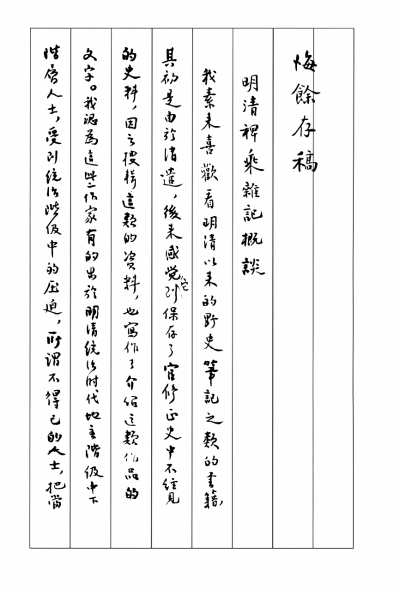 悔餘存稿
明清稗乘雜記概談
我素来喜歡看明清以来的野史筆記之類的書籍,
其初是由於消遣,後来感覺到它保存了官修正史中不經見
的史料,因之搜輯這類的資料,也寫作了介紹這類作品的
文字。我認為這些作家有的出於明清統治时代地主階級中下
階層人士,受到統治階级中的压迫,所谓不得已的人士,把當